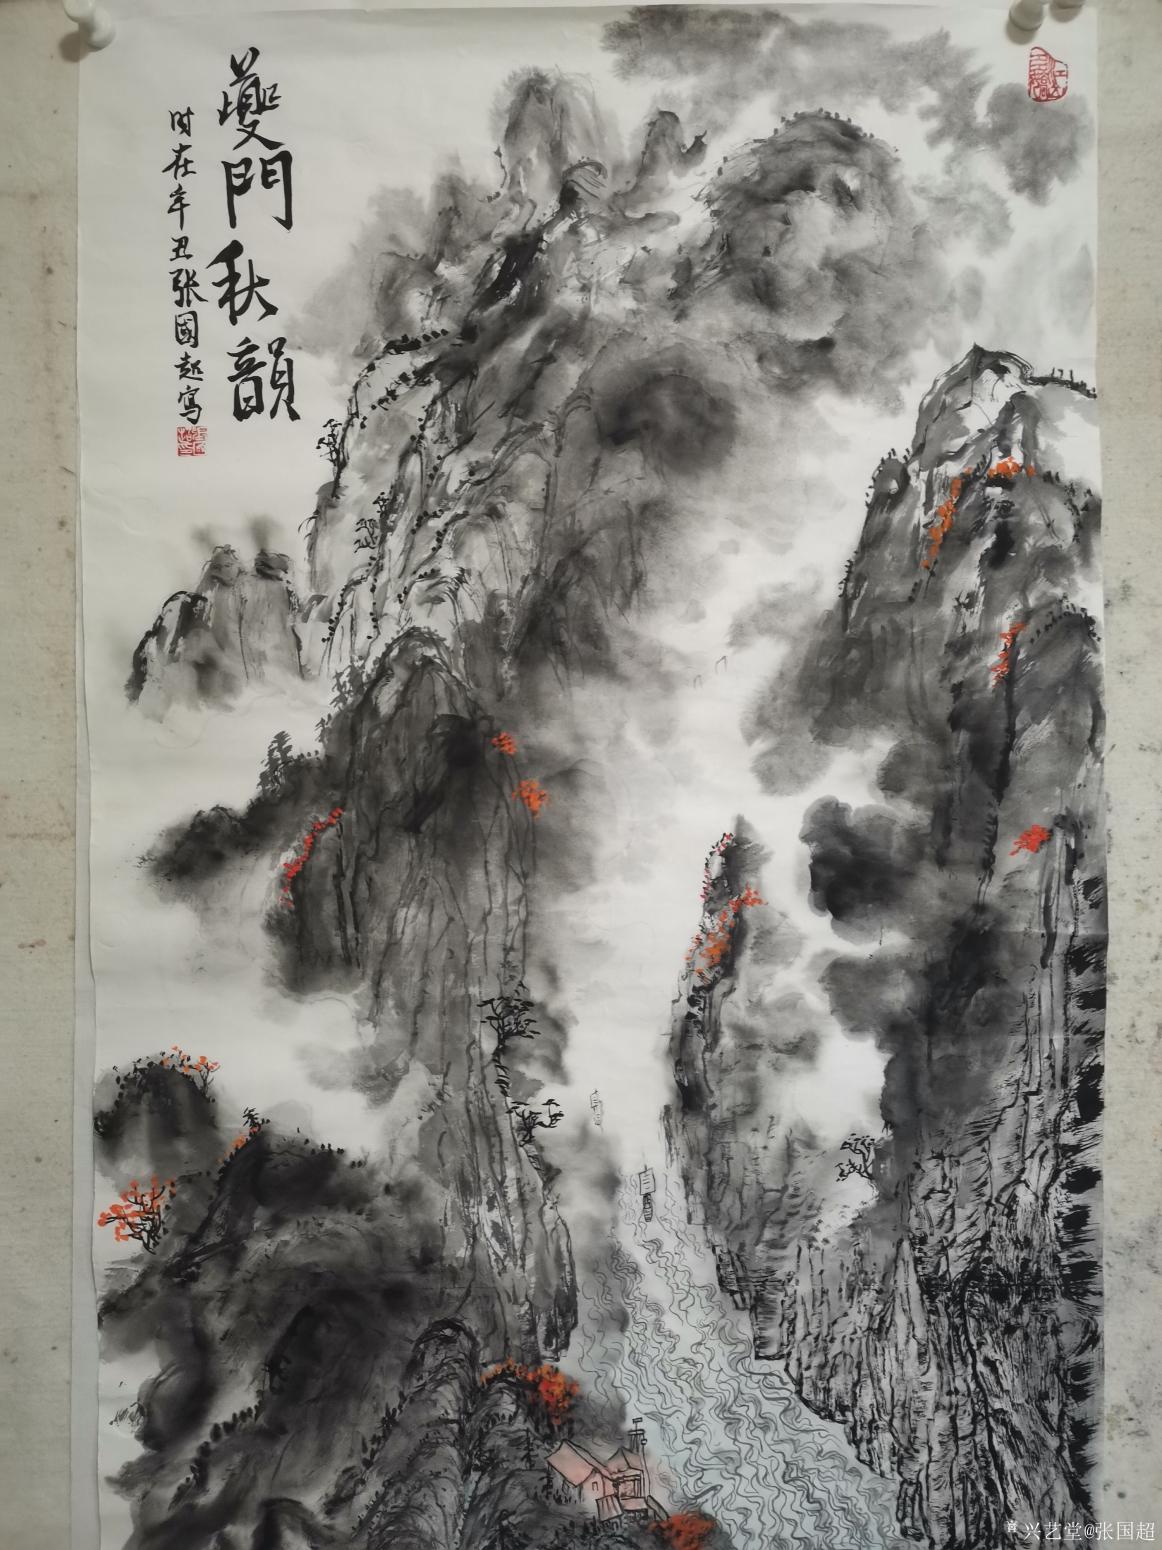 夔門秋韻
时在辛丑张國超寫
兴艺堂@张国超